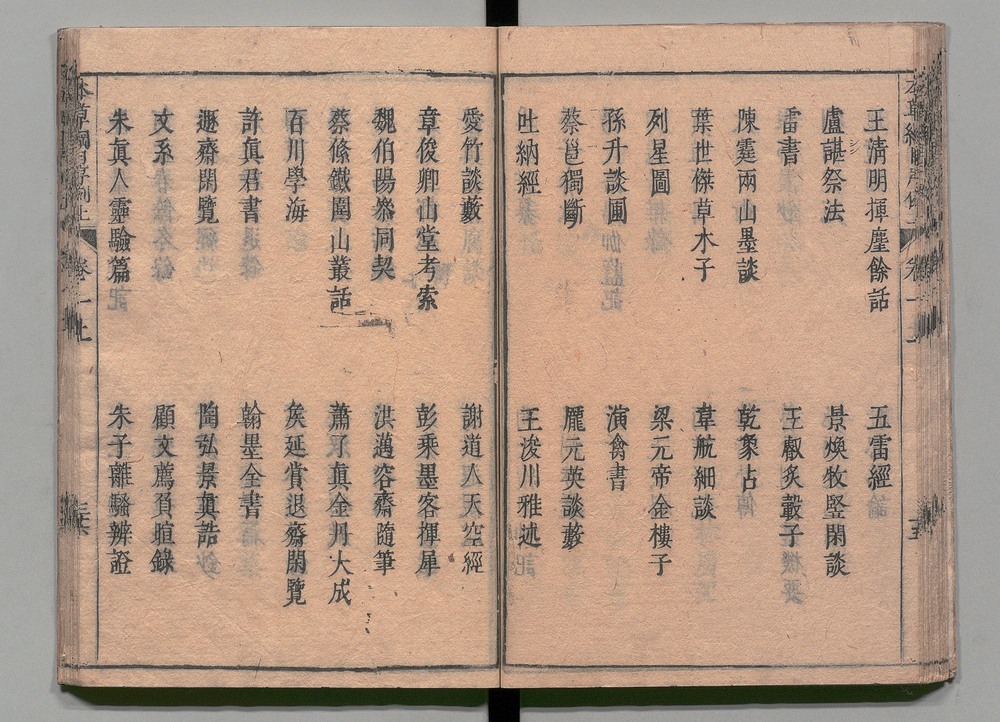 王清明揮麈餘話　五雷經
盧諶祭法　景煥牧竪閑談
雷書　王叡炙轂子
陳霆兩山墨談　乾象占
葉世傑草木子　韋航細談
列星圖　梁元帝金樓子
孫升談圃　演禽書
蔡邕獨斷　龎元英談藪
吐納經　王浚川雅述
愛竹談藪　謝道人天空經
章俊卿山堂考索　彭乘墨客揮犀
魏伯陽叅同契　洪邁容齋隨筆
蔡絛鐵圍山叢話　蕭了眞金丹大成
百川學海　矦延賞退齋閑覽
許眞君書　翰墨全書
遯齋閑覽　陶弘景眞誥
文系　顧文薦負暄錄
朱眞人靈驗篇　朱子離騷辨證
本草綱目序例上　卷一上